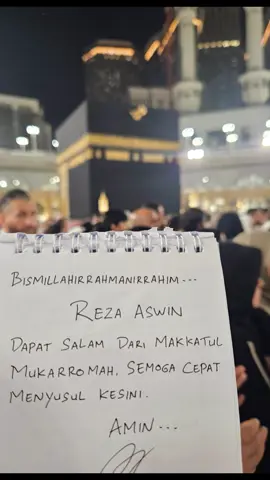 BISMILLAHIRRAHMANIRRAHIM...
REZA ASWIN
DAPAT SALAM DARI MAKKATUL
MUKARROMAH. SEMOGA CEPAT
MENYUSUL KESINI.
AMIN...